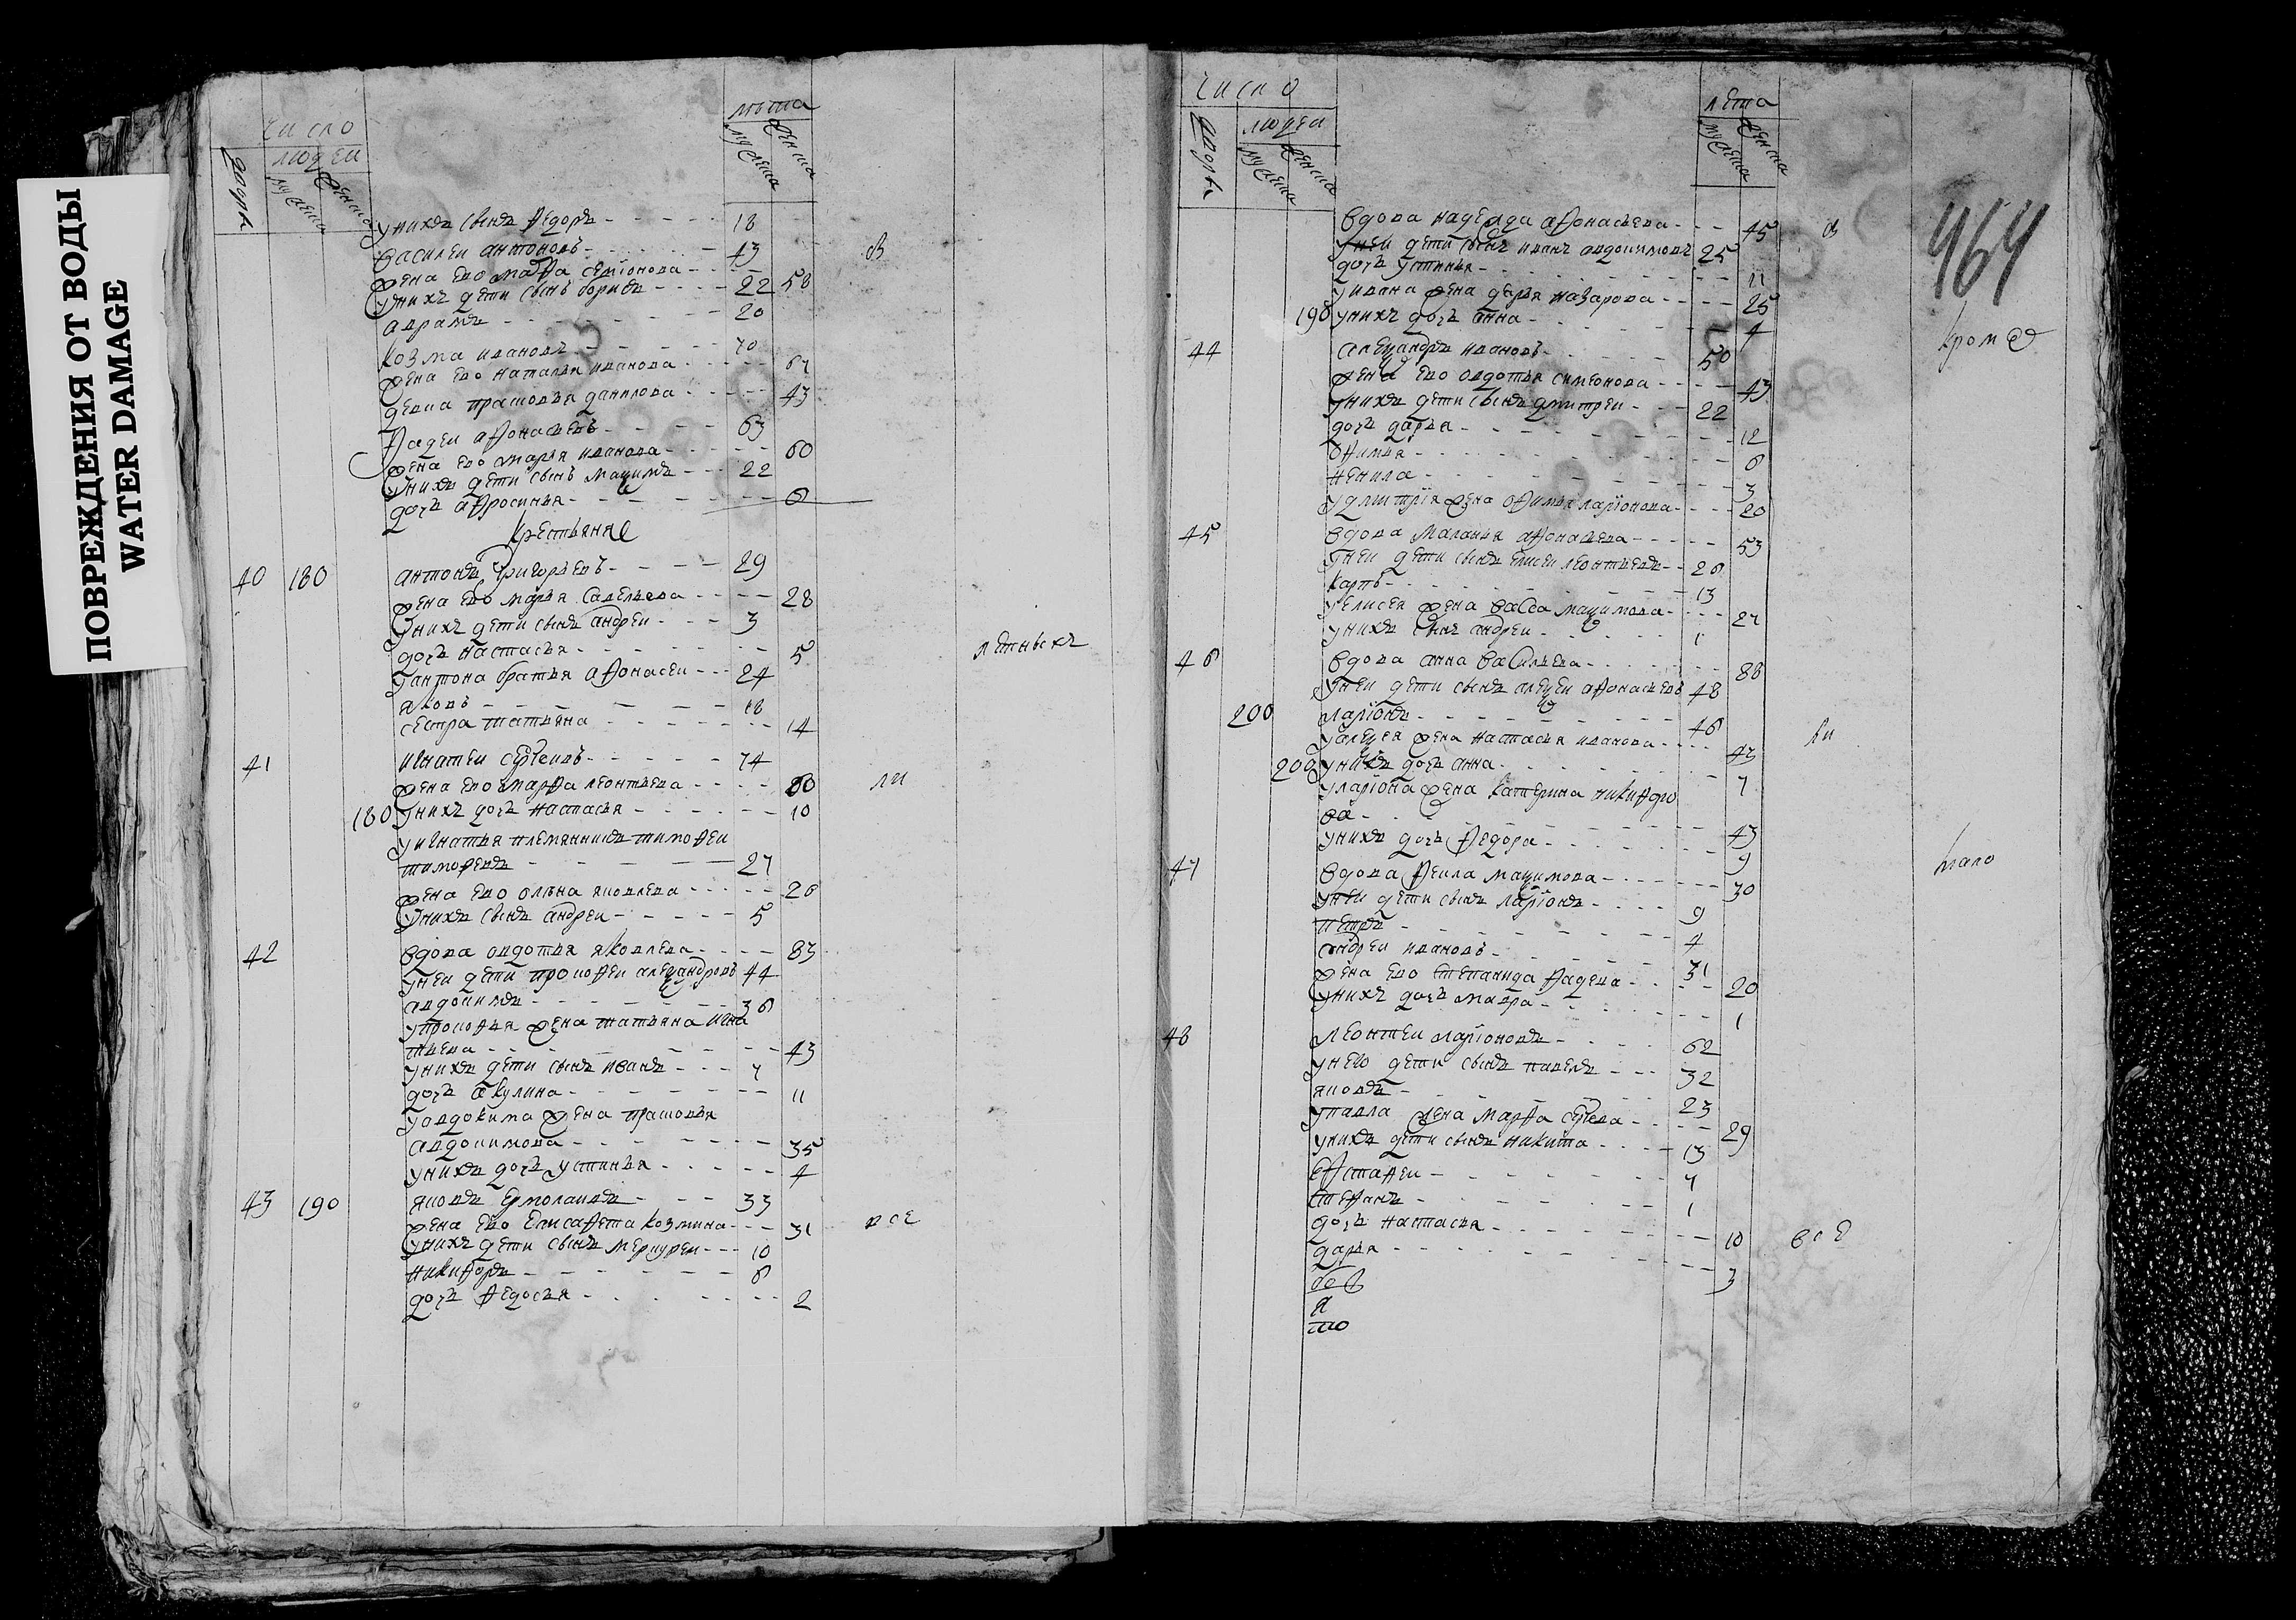 ПОВРЕЖДЕНИЯ ОТ ВОДЫ
WATER DAMAGE
число
людеи
лѣта
дворы
мужеска
женска
мужеска
женска
унихъ сынъ ѳедоръ 18
василеи антоновъ 43 св
жена ево марѳа семионова 58
унихъ дети сынъ борисъ 22
аврамъ 20
козма ивановъ 70
жена ево наталья иванова 67
девка прасковья данилова 43
ѳадеи аѳонасьевъ 63
жена ево марья иванова 60
унихъ дети сынъ маѯимъ 22
дочь аѳросинья 6
крестьяня
40 180 антонъ григорьевъ 29
жена ево марья савельева 28
унихъ дети сынъ андреи 3
дочь настасья 5 лѣтныхъ
уантона братья аѳонасеи 24
яковъ 18
сестра татьяна 14
41 игнатеи сергеевъ 74
жена ево марѳа леонтьева 80 ли
180 унихъ дочь настасья 10
уигнатья племянникъ тимоѳеи
тимоѳеевъ 27
жена ево олѣна яковлева 26
унихъ сынъ андреи 5
42 вдова овдотья яковлева 83
унеи дети прокоѳеи алеѯандровъ 44
авдокимъ 36
упрокоѳья жена татьяна игна
тьева 43
унихъ дети сынъ иванъ 7
дочь акулина 11
уавдокима жена прасковья
авдокимова 35
унихъ дочь устинья 4
43 190 яковъ ермолаивъ 33
жена ево елисаѳета козмина 31 все
унихъ дети сынъ меркуреи 10
никиѳоръ 6
дочь ѳедосья 2
число
людеи
лета
дворы
мужеска
женска
мужеска
женска
464
вдова надежда аѳонасьева 45 св
унеи дети сынъ иванъ авдокимовъ 25
дочь устинья 11
уивана жена дарья назарова 25
190 унихъ дочь анна 4
44 алеѯандръ ивановъ 50 кроме
жена ево овдотья симеонова 43
унихъ дети сынъ дмитреи 22
дочь дарья 12
оѳимья 6
ненила 3
удмитрія жена оѳимья ларіонова 20
45 вдова маланья аѳонасьева 53
унеи дети сынъ елисеи леонтьевъ 26
карпъ 13
уелисея жена васса маѯимова 27
унихъ сынъ андреи 1
46 вдова анна васильева 88
унеи дети сынъ алеѯеи аѳонасьевъ 48
200 ларіонъ 46
уалеѯея жена настасья иванова 47 ли
200 унихъ дочь анна 7
уларіона жена катерина никиѳоро
ва 43
унихъ дочь ѳедора 9
47 вдова ѳекла маѯимова 30 мало
унеи дети сынъ ларіонъ 9
петръ 4
андреи ивановъ 31
жена ево степанида ѳадеева 20
унихъ дочь мавра 1
48 леонтеи ларіоновъ 62
унего дети сынъ павелъ 32
яковъ 23
упавла жена марѳа сергеева 29
унихъ дети сынъ никита 13
еѵстаѳеи 7
стеѳанъ 1
дочь настасья 10 все
дарья 3
я
то